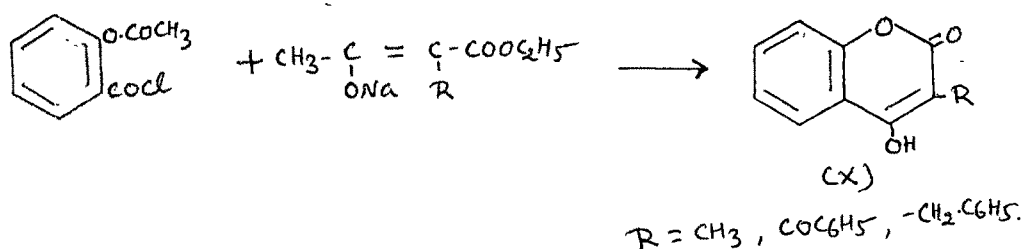 O·COCH3
COCl
+ CH3-C=C-COOC2H5
ONa R
O O
R
OH
(X)
R = CH3, COC6H5, -CH2·C6H5.